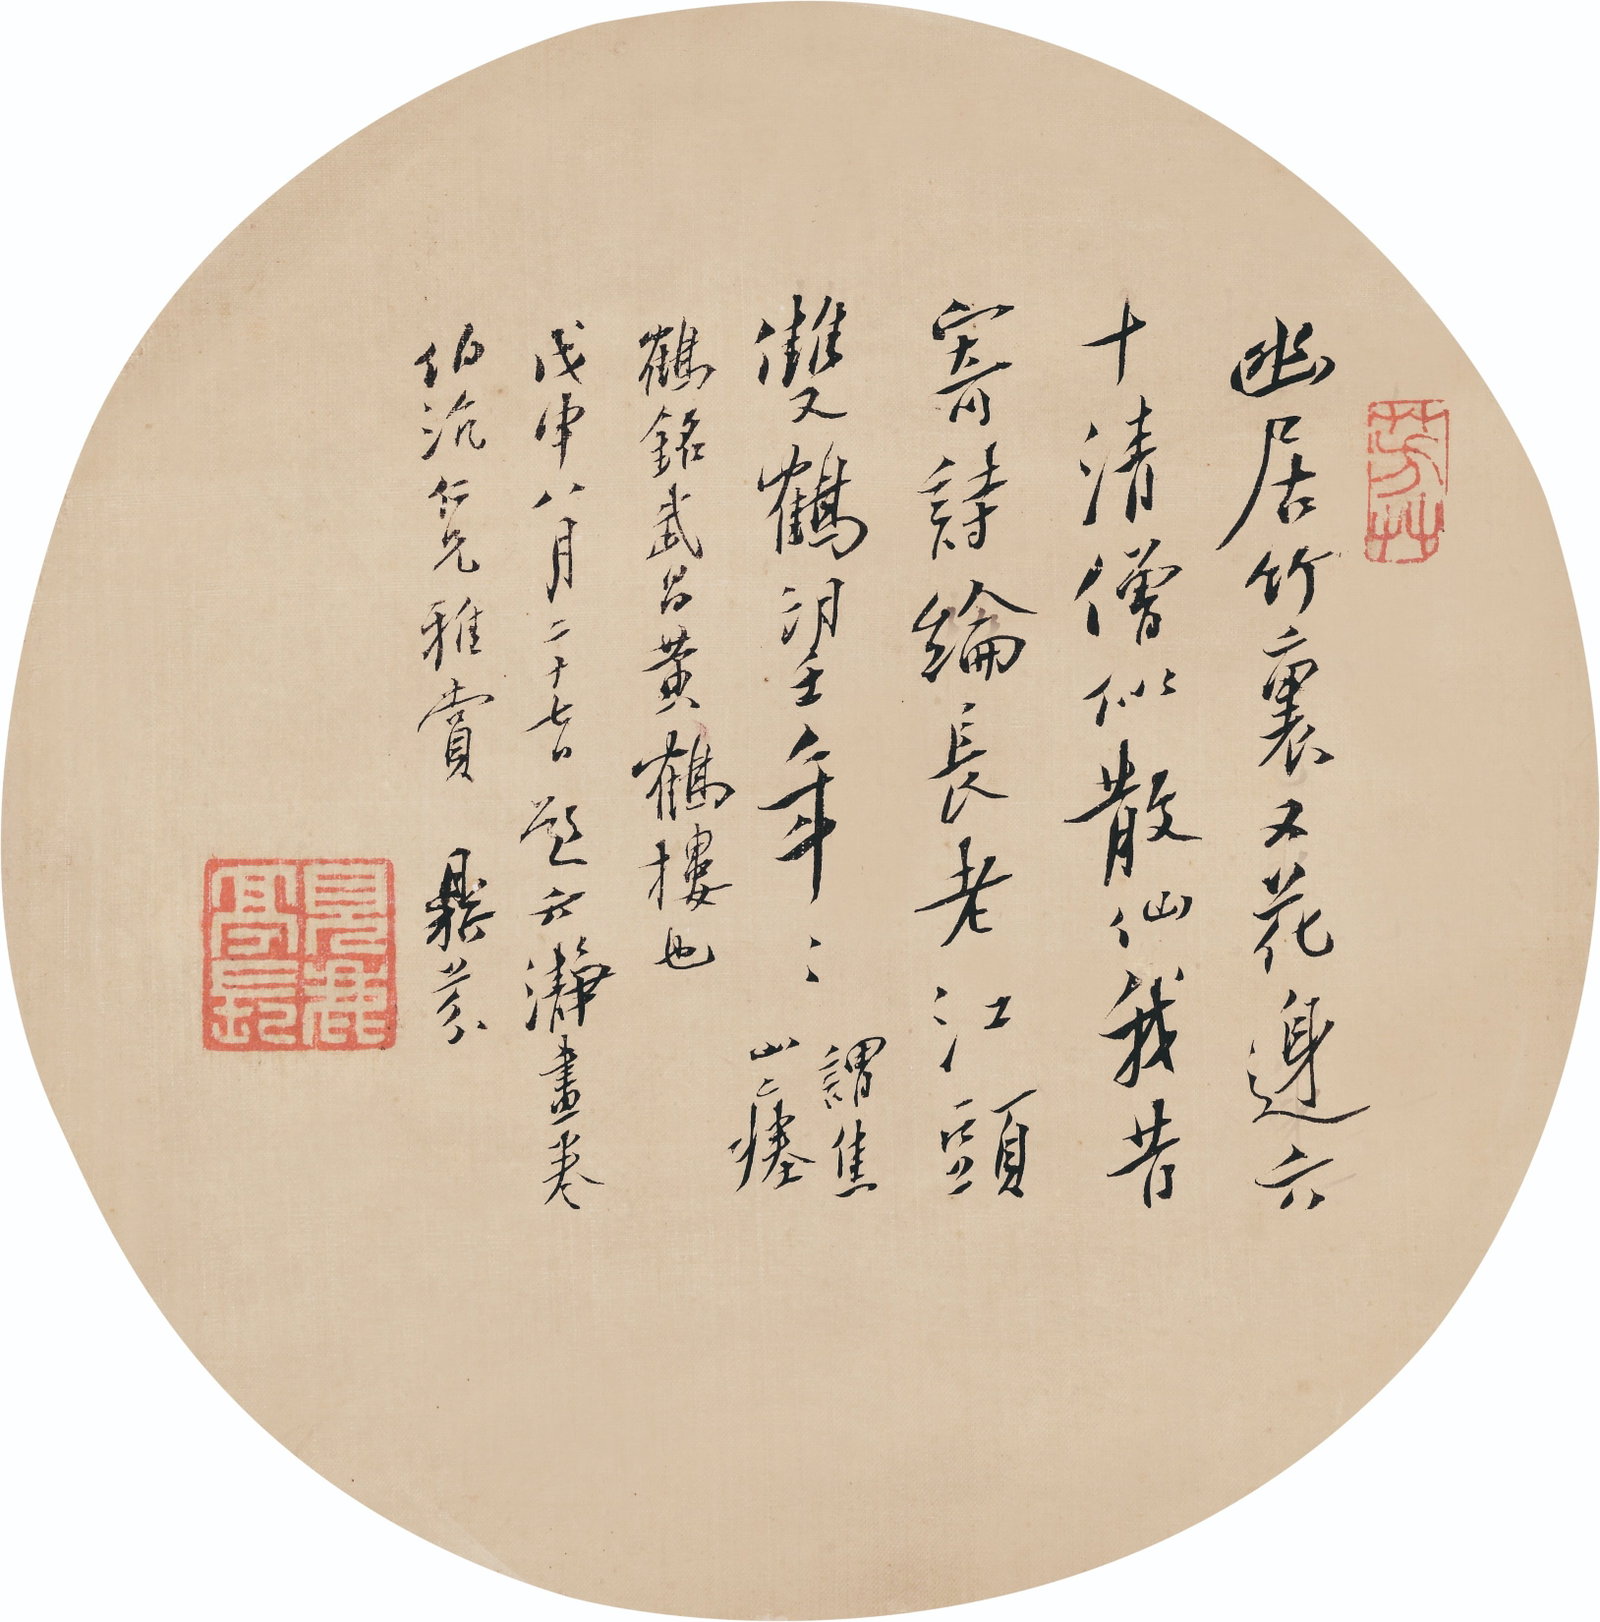 芳艸
幽居竹裏又花邊六
十清僧似散仙我昔
寄詩綸長老江頭
雙鶴望年〻謂焦
山之瘞
鶴銘武昌黃鶴樓也
戊申八月二十七日題六瀞畫卷
伯沆仁兄雅賞 鼎芬